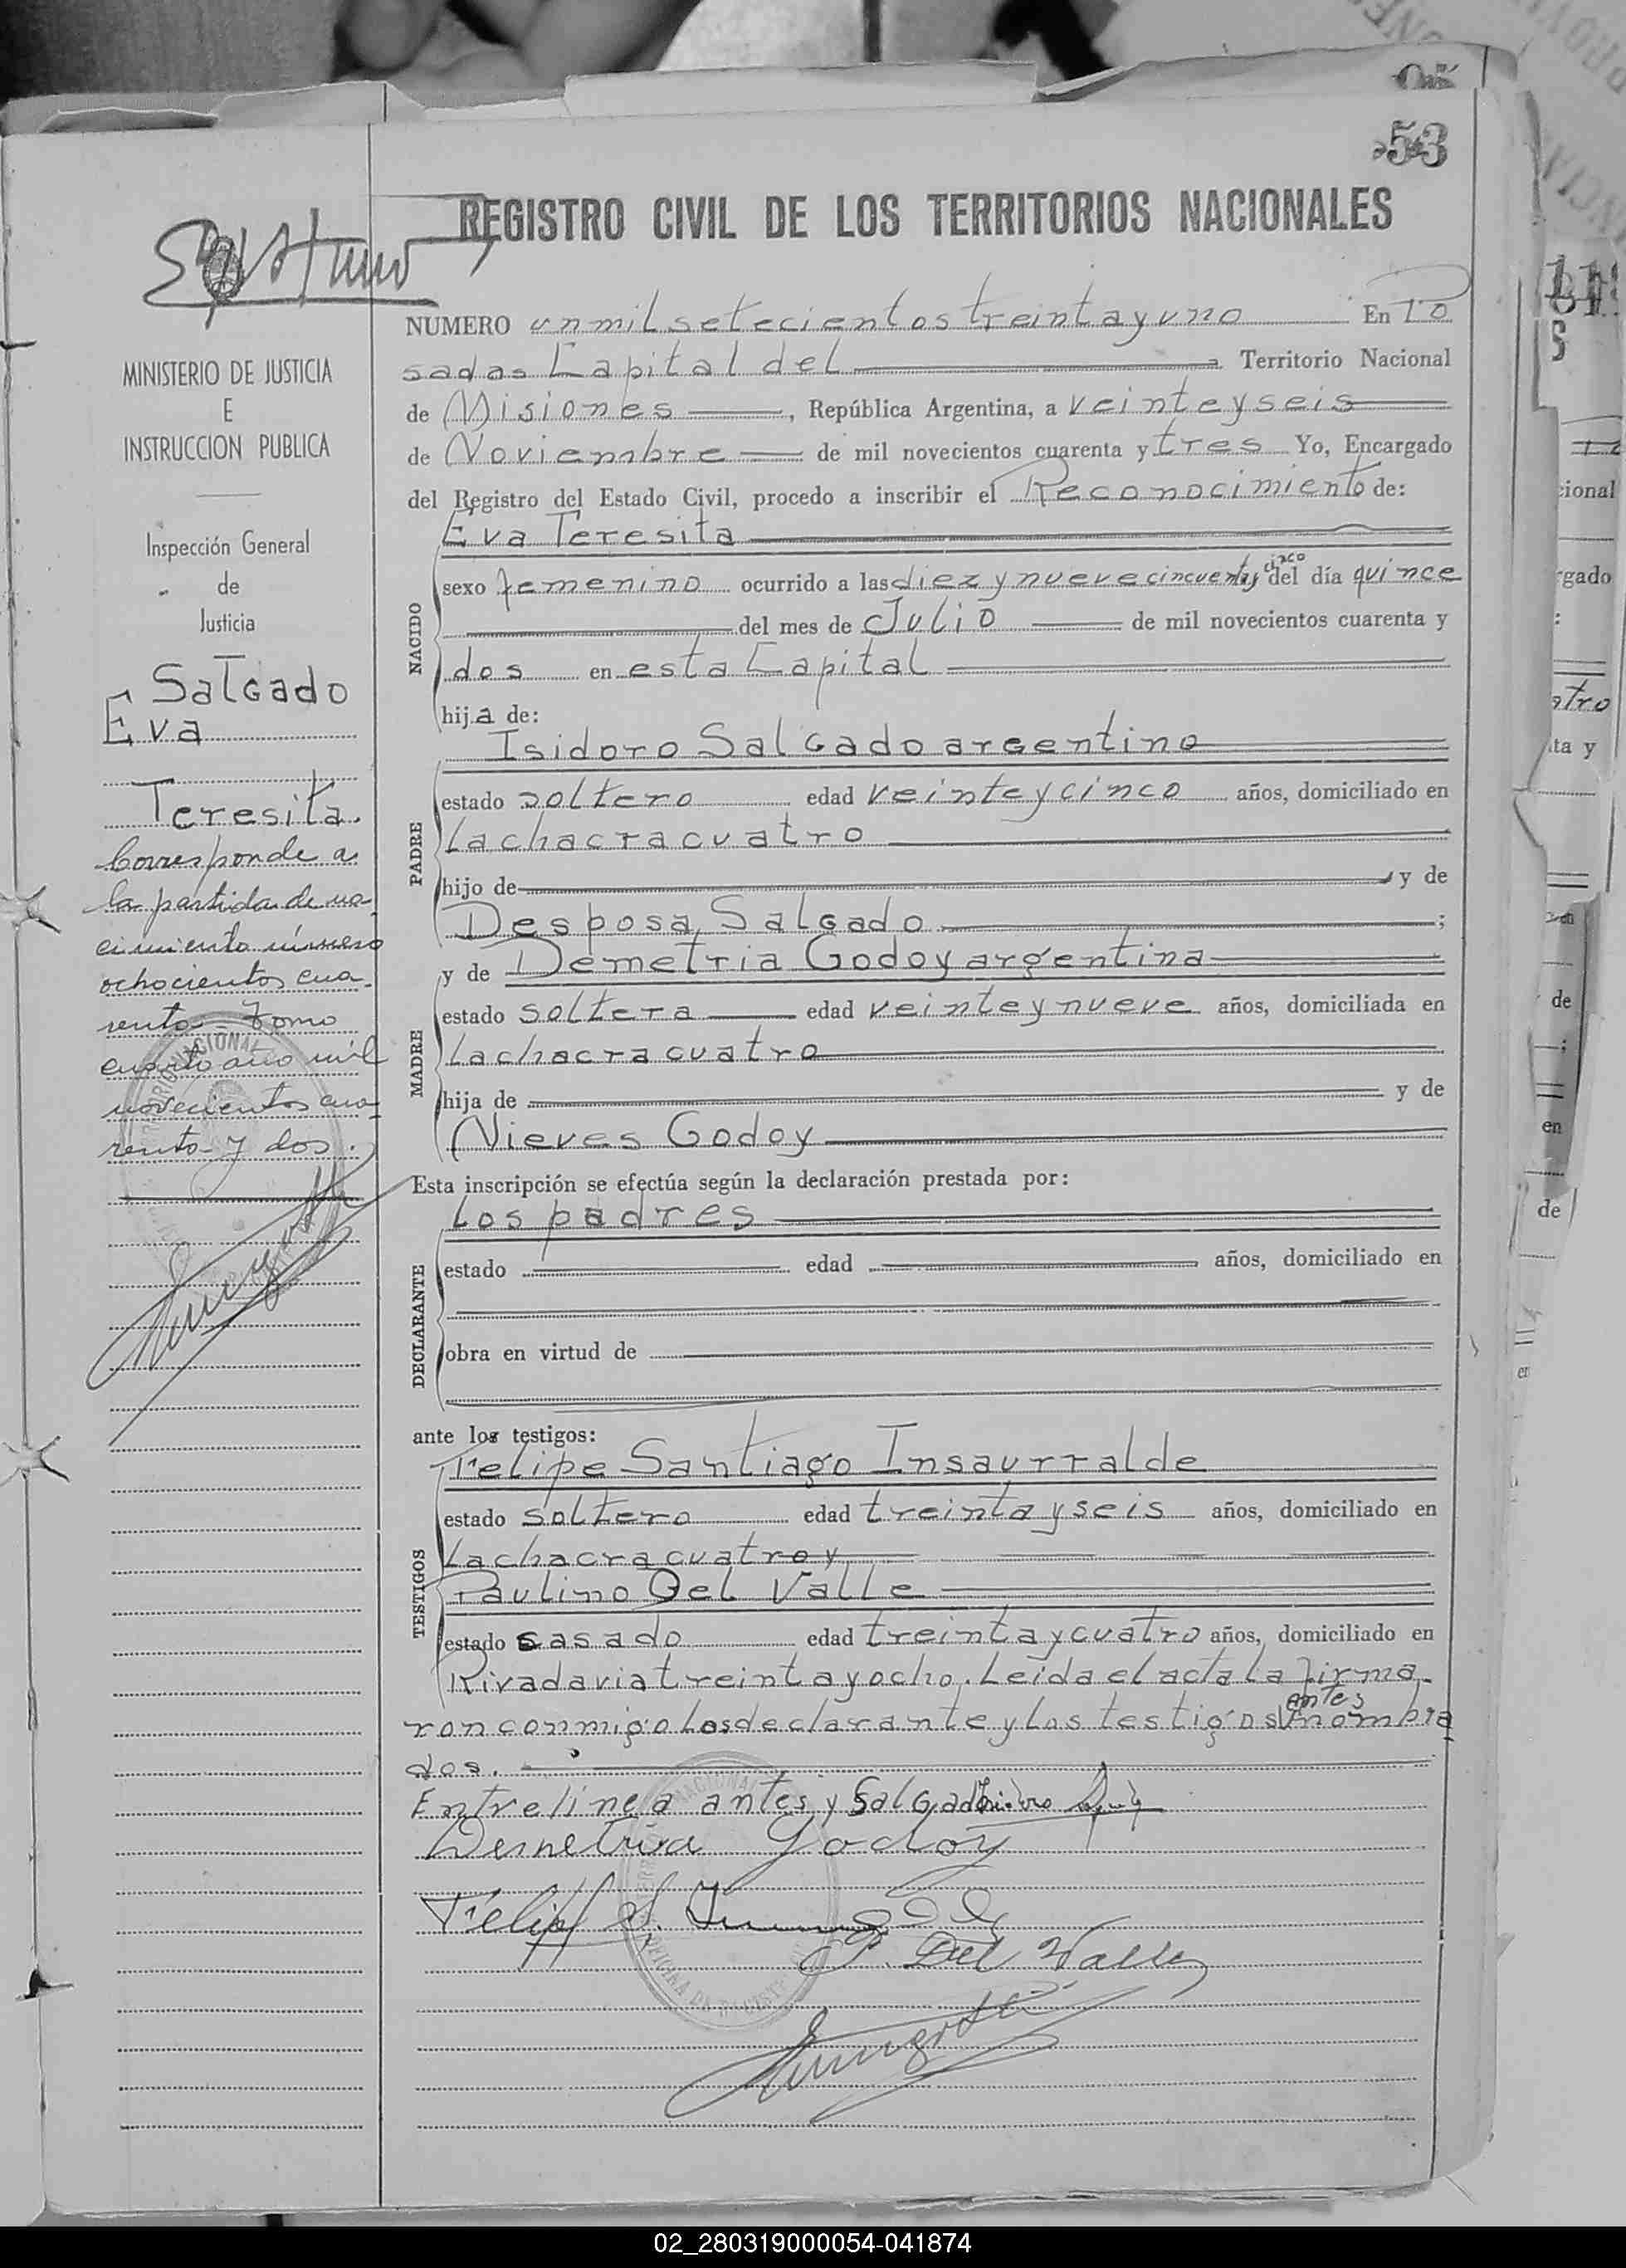 53
REGISTRO CIVIL DE LOS TERRITORIOS NACIONALES
MINISTERIO DE JUSTICIA
E
INSTRUCCION PUBLICA
Inspección General
de
Justicia
Salgado
Eva
Teresita.
Corresponde a
la partida de na-
cimiento número
ochocientos cua-
renta - Tomo
cuarto año mil
novecientos cua-
renta y dos.
NUMERO un mil setecientos treinta y uno En Po
sadas Capital del Territorio Nacional
de Misiones, República Argentina, a veinte y seis
de Noviembre de mil novecientos cuarenta y tres Yo, Encargado
del Registro del Estado Civil, procedo a inscribir el Reconocimiento de:
NACIDO
Eva Teresita
cinco
sexo femenino ocurrido a las diez y nueve cincuenta y del día quince
del mes de Julio de mil novecientos cuarenta y
dos en esta Capital
hija de:
PADRE
Isidoro Salgado argentino
estado soltero edad veinte y cinco años, domiciliado en
la chacra cuatro
hijo de y de
Desposa Salgado ;
MADRE
y de Demetria Godoy argentina
estado soltera edad veinte y nueve años, domiciliada en
la chacra cuatro
hija de y de
Nieves Godoy
Esta inscripción se efectúa según la declaración prestada por:
DECLARANTE
Los padres
estado edad años, domiciliado en
obra en virtud de
ante los testigos:
TESTIGOS
Felipe Santiago Insaurralde
estado soltero edad treinta y seis años, domiciliado en
la chacra cuatro y
Paulino Del Valle
estado casado edad treinta y cuatro años, domiciliado en
Rivadavia treinta y ocho. Leida el acta la firma-
antes
ron conmigo los declarante y los testigos nombra
dos.
Entrelinea antes y Salgado Isidro
Demetria Godoy
Felipe S.
P. Del Valle
02_280319000054-041874